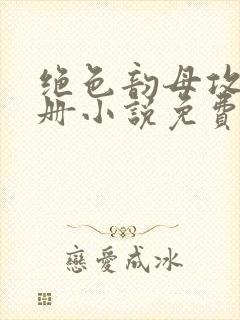 绝色韵母攻
册小说免費
戀愛成冰